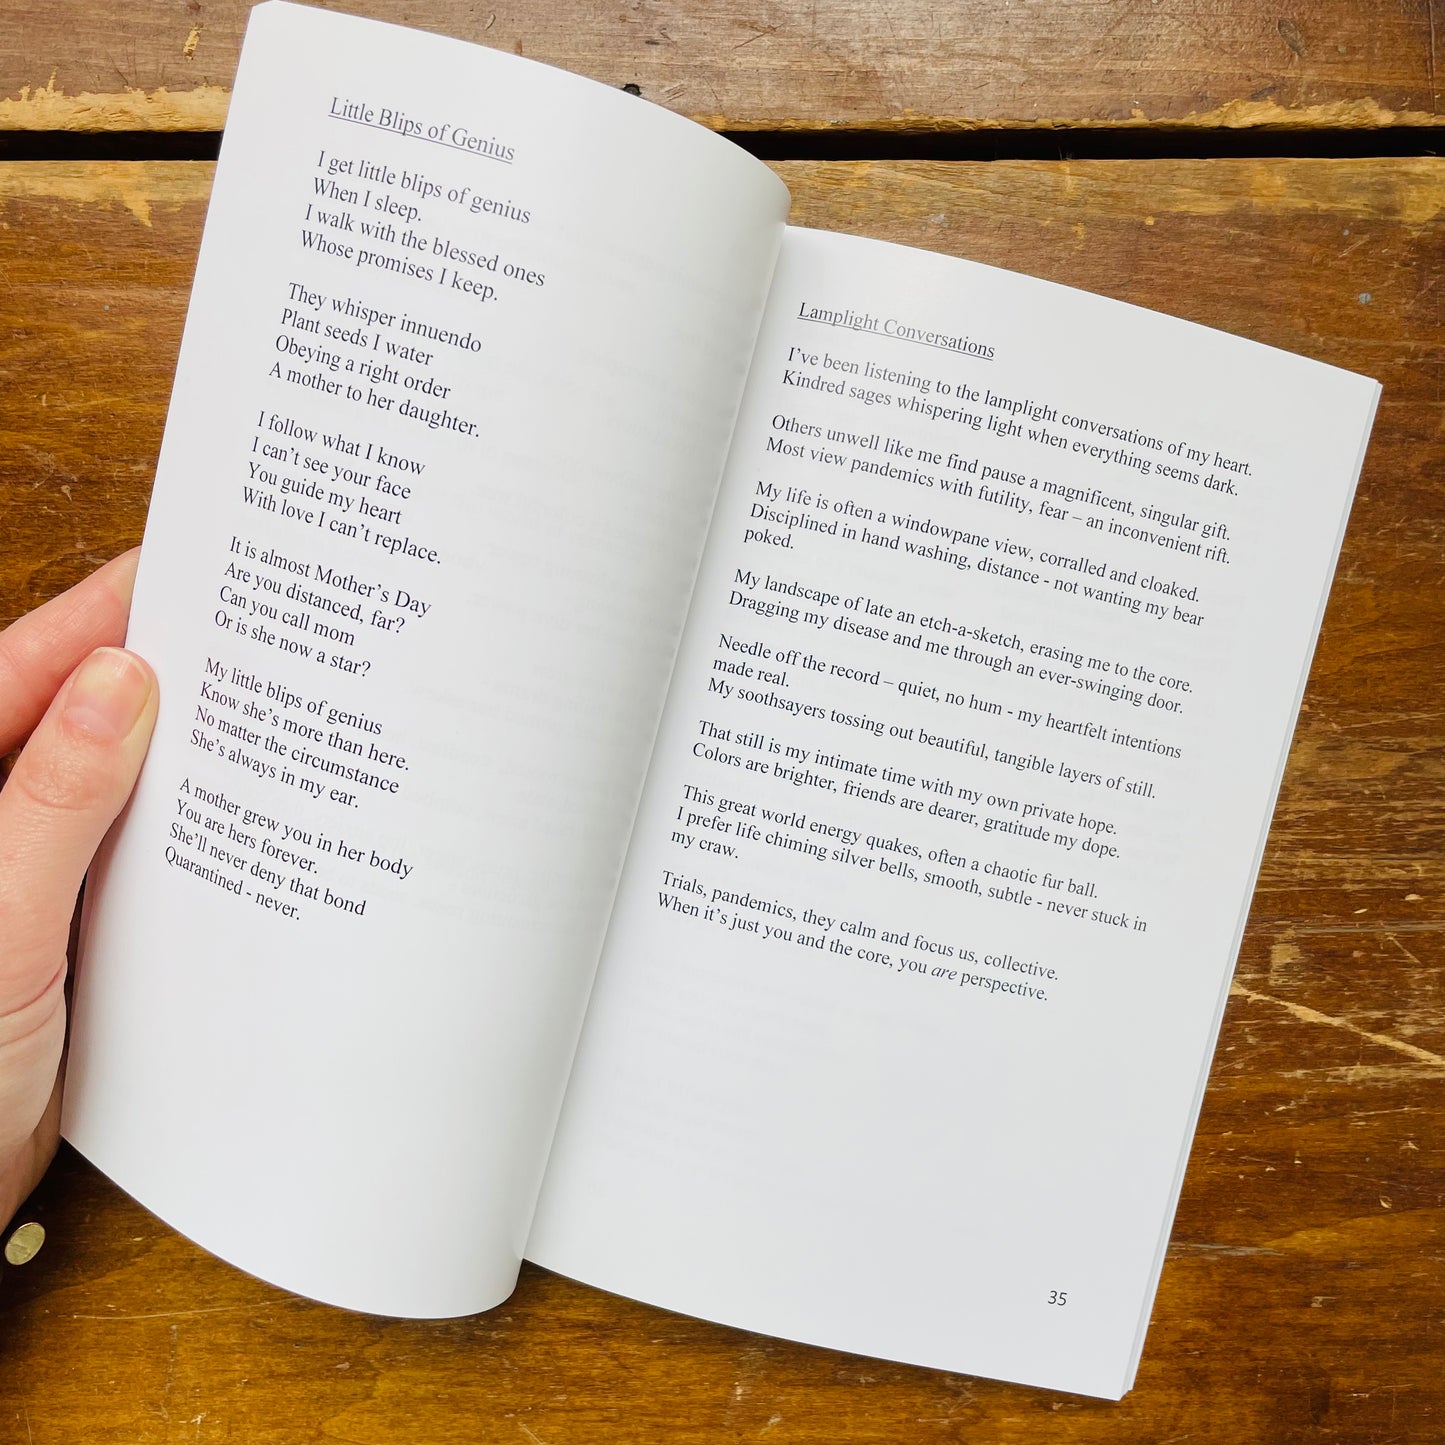 Little Blips of Genius
I get little blips of genius
When I sleep.
I walk with the blessed ones
Whose promises I keep.
They whisper innuendo
Plant seeds I water
Obeying a right order
A mother to her daughter.
I follow what I know
I can't see your face
You guide my heart
With love I can't replace.
It is almost Mother's Day
Are you distanced, far?
Can you call mom
Or is she now a star?
My little blips of genius
Know she's more than here.
No matter the circumstance
She's always in my ear.
A mother grew you in her body
You are hers forever.
She'll never deny that bond
Quarantined - never.
Lamplight Conversations
I've been listening to the lamplight conversations of my heart.
Kindred sages whispering light when everything seems dark.
Others unwell like me find pause a magnificent, singular gift.
Most view pandemics with futility, fear – an inconvenient rift.
My life is often a windowpane view, corralled and cloaked.
Disciplined in hand washing, distance - not wanting my bear
poked.
My landscape of late an etch-a-sketch, erasing me to the core.
Dragging my disease and me through an ever-swinging door.
Needle off the record – quiet, no hum - my heartfelt intentions
made real.
My soothsayers tossing out beautiful, tangible layers of still.
That still is my intimate time with my own private hope.
Colors are brighter, friends are dearer, gratitude my dope.
This great world energy quakes, often a chaotic fur ball.
I prefer life chiming silver bells, smooth, subtle - never stuck in
my craw.
Trials, pandemics, they calm and focus us, collective.
When it's just you and the core, you are perspective.
35